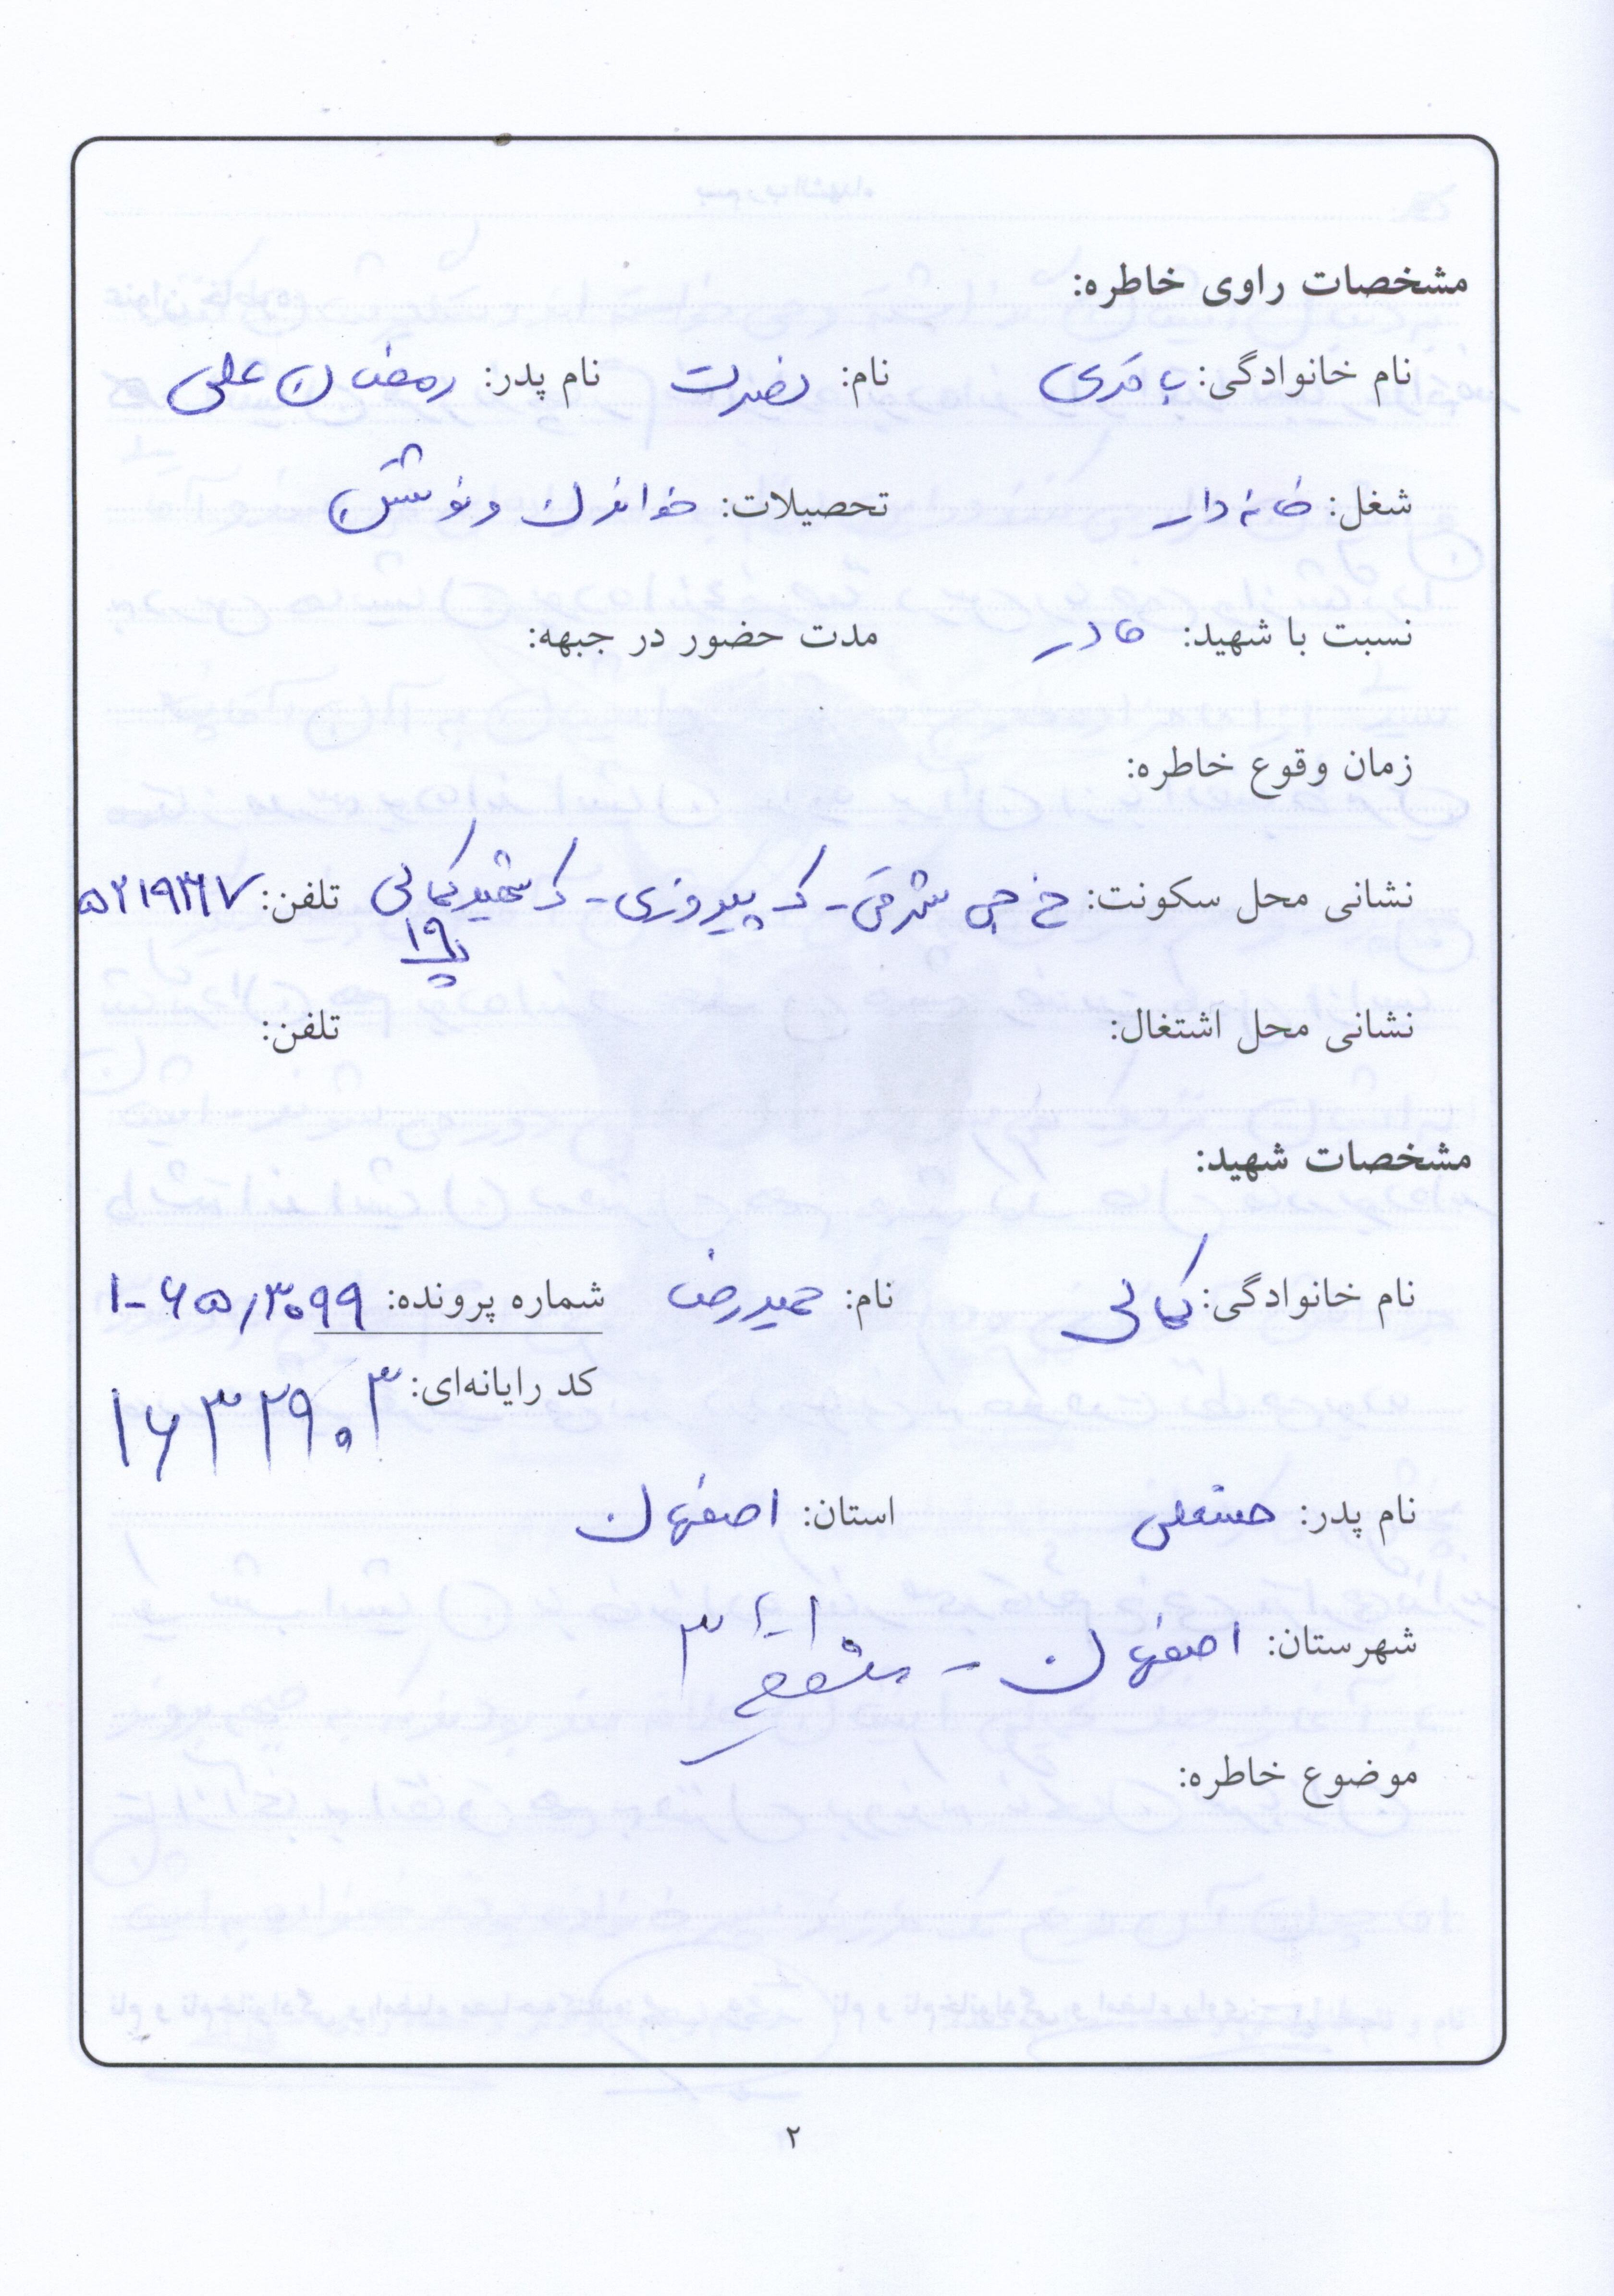 مشخصات راوی خاطره:
نام خانوادگی: باقری نام: نصرت نام پدر: رمضان علی
شغل: خانه دار تحصیلات: خواندن و نوشتن
نسبت با شهید: مادر مدت حضور در جبهه:
زمان وقوع خاطره:
نشانی محل سکونت: خ جی شرقی - ک پیروزی - ک شهید کمالی تلفن: ۵۲۱۹۳۶۷
پ ۱۹
نشانی محل اشتغال: تلفن:
مشخصات شهید:
نام خانوادگی: کمالی نام: حمیدرضا شماره پرونده: ۱-۶۵/۳۰۹۹
کد رایانه‌ای: ۱۶۳۲۹۰۳
نام پدر: حسنعلی استان: اصفهان
شهرستان: اصفهان - منطقه ۳
موضوع خاطره:
۲